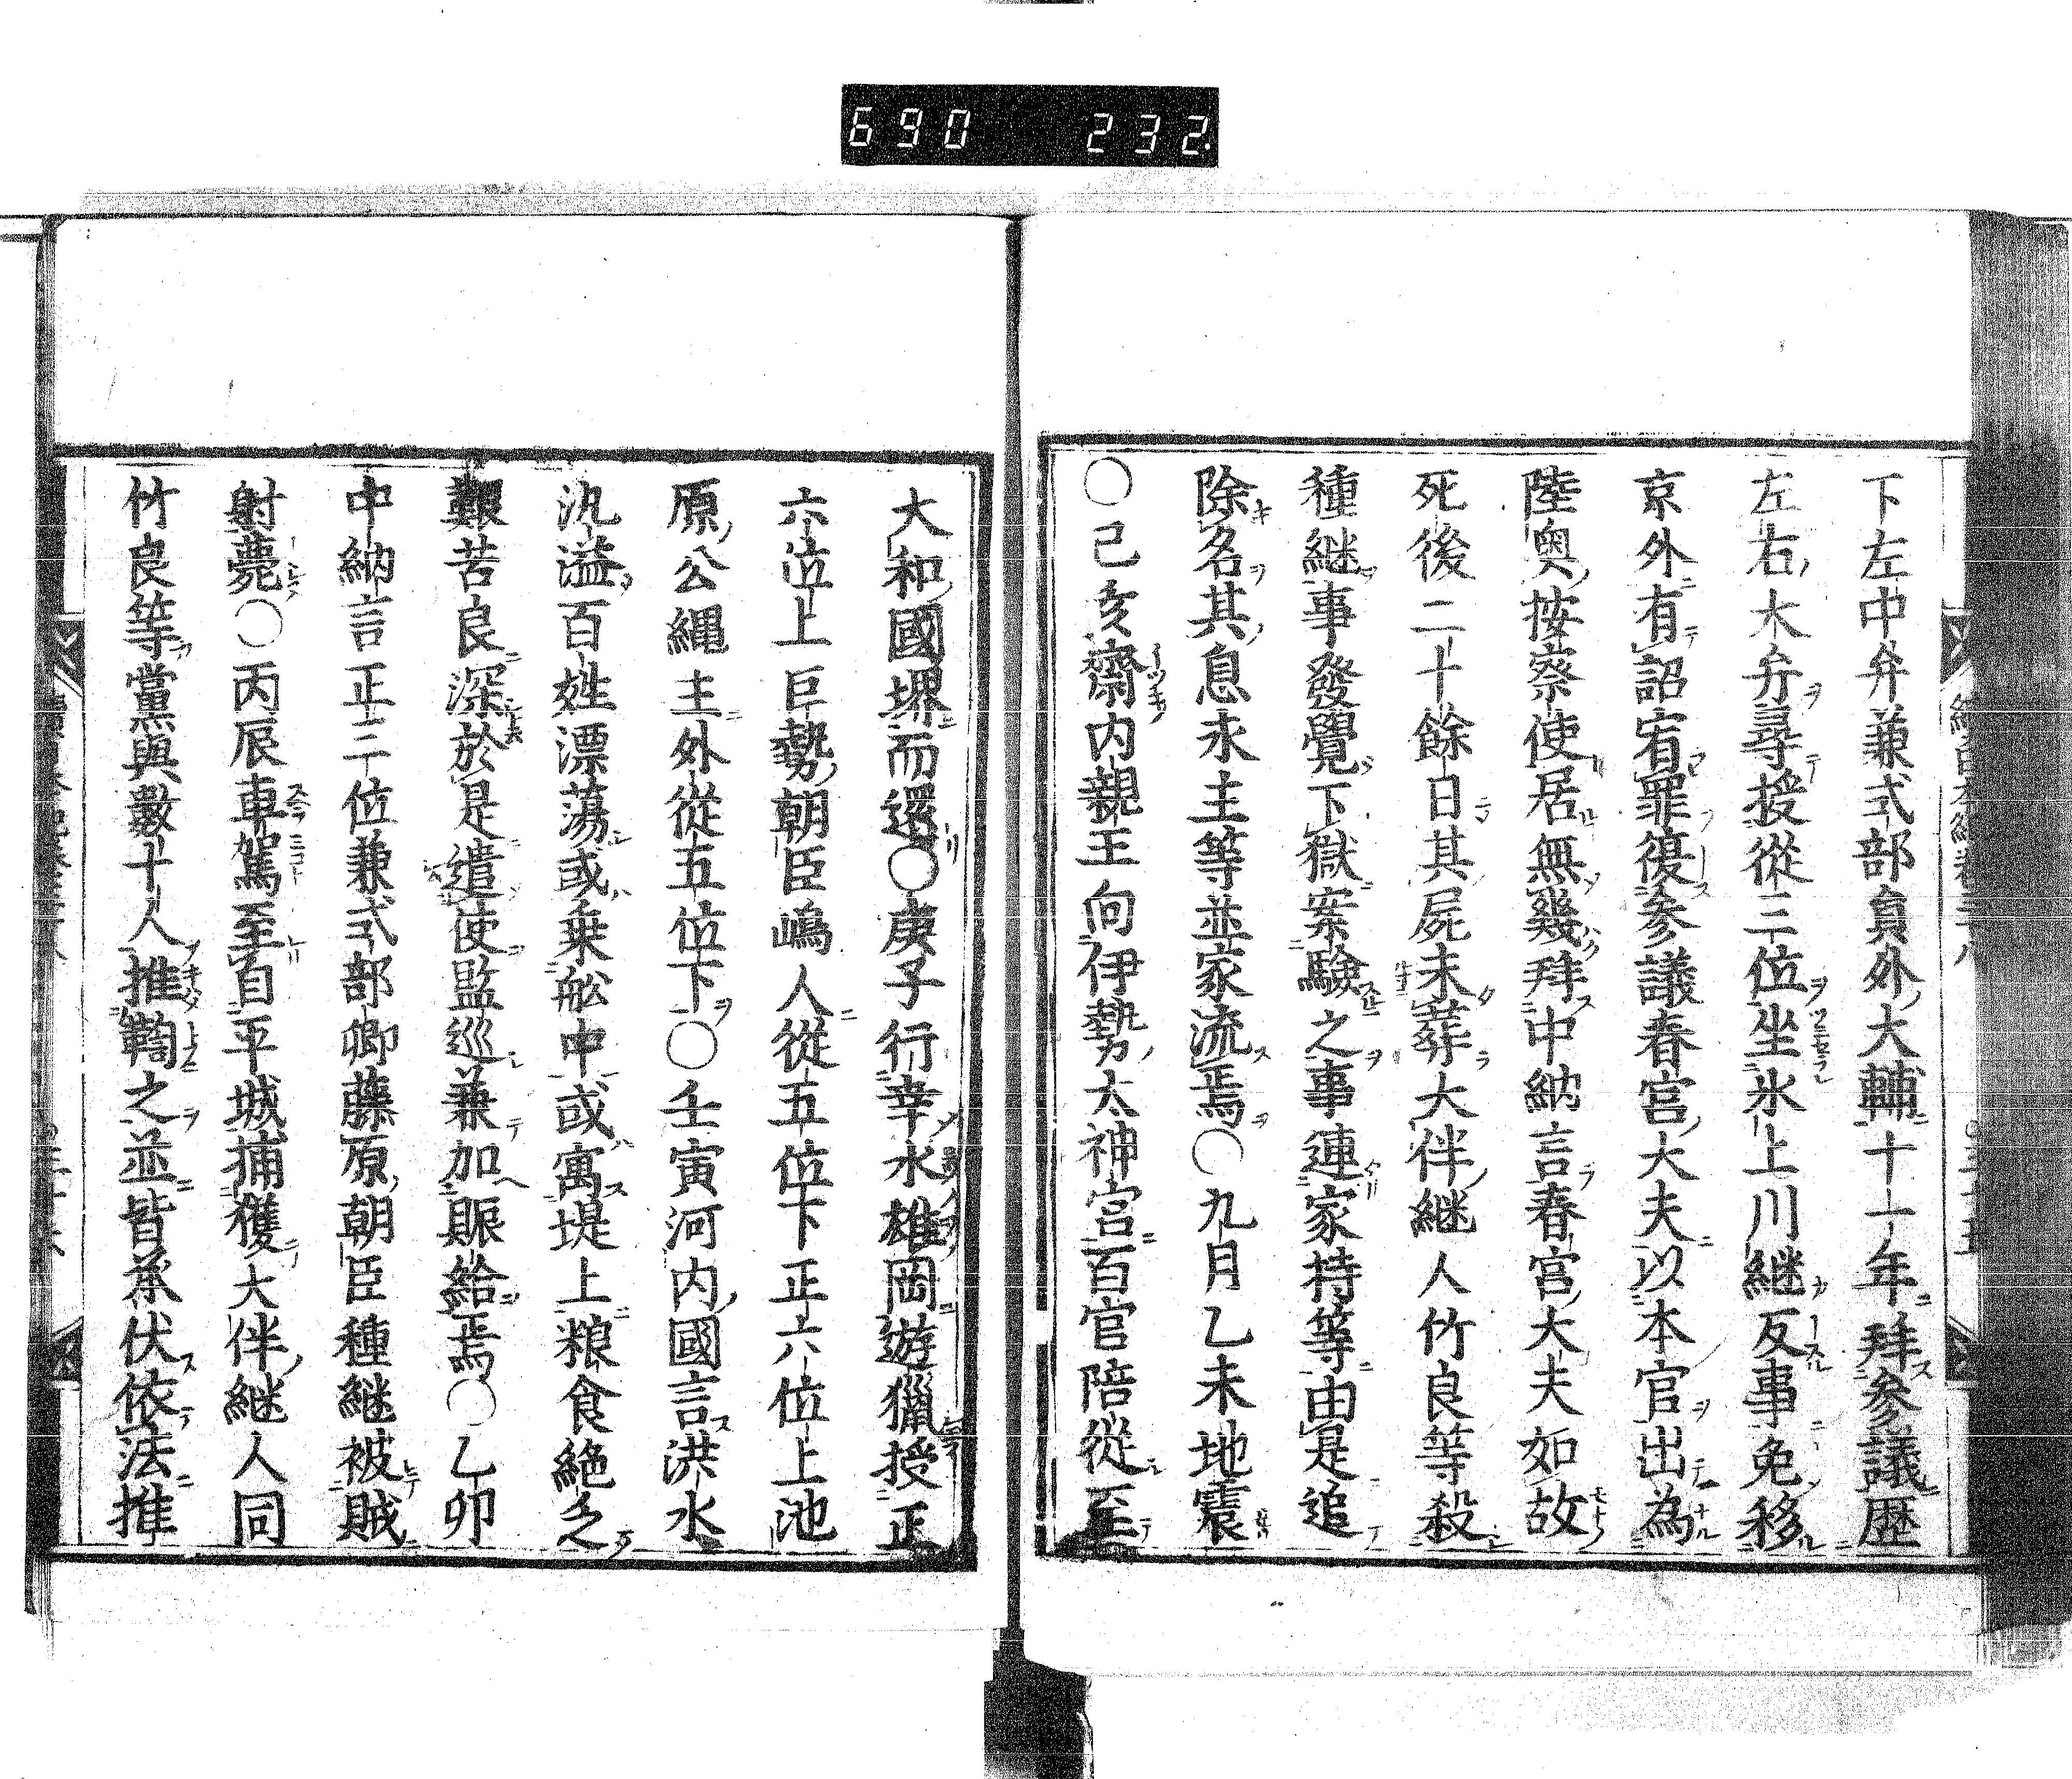 690 232.
下左中弁兼式部員外大輔十一年拜参議歴
左右大弁尋授從三位坐氷上川継反事免移
京外有詔宥罪復参議春宮大夫以本官出為
陸奥按察使居無幾拜中納言春宮大夫如故
死後二十餘日其屍未葬大伴継人竹良等殺
種継事發覺下獄案驗之事連家持等由是追
除名其息永主等並家流焉〇九月乙未地震
〇己亥齋内親王向伊勢太神宮百官陪從至
大和國堺而還〇庚子行幸水雄岡遊獵授正
六位上巨勢朝臣嶋人從五位下正六位上池
原公縄主外從五位下〇壬寅河内國言洪水
汎溢百姓漂蕩或乗舩中或寓堤上粮食絶乏
艱苦良深於是遣使監巡兼加賑給焉〇乙卯
中納言正三位兼式部卿藤原朝臣種継被賊
射薨〇丙辰車駕至自平城捕獲大伴継人同
竹良等黨與數十人推鞫之並皆承伏依法推